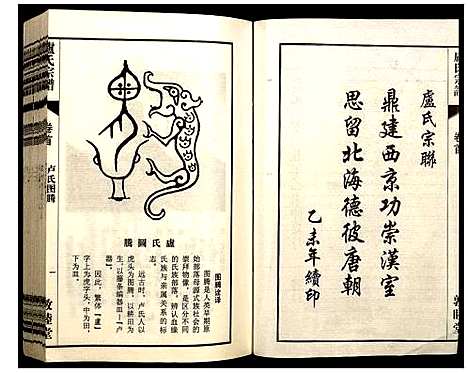 盧氏宗譜
卷首
盧氏宗聯
鼎建西京功崇漢室
思留北海德彼唐朝
乙未年續印
敦睦堂
盧氏宗譜
卷首
卢氏图腾
一
敦睦堂
盧氏圖騰
图腾诠译
图腾是人类早期原
始部落母源式族社会的
崇拜物像，是区分不同
的氏族部落，辨认血缘
氏族与亲属关系的标
志。
远古时，卢氏人以
虎头为图腾，以耕田为
生，以藤条编器皿“卢
器”。
因此，繁体“盧”
字上为虎字头，中为田，
下为皿。